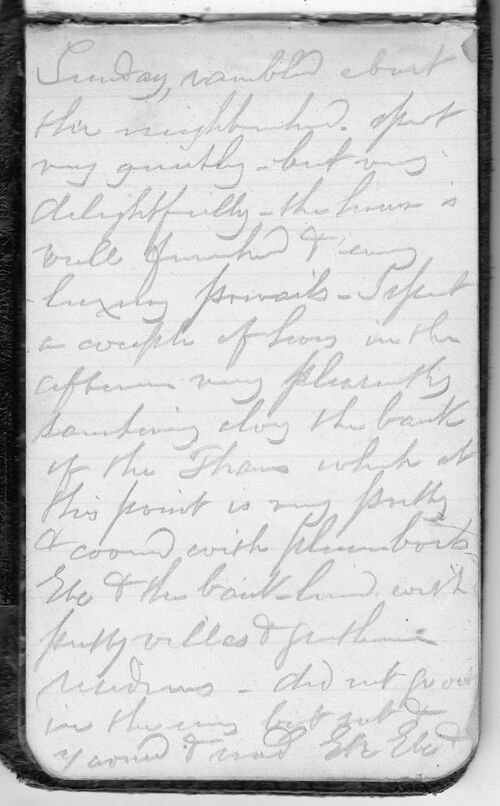 Sunday, rambled about
the neighborhood. Spent
very quietly - but very
delightfully - the house is
well furnished & every
luxury prevails - I spent
a couple of hours in the
afternoon very pleasantly
sauntering along the bank
of the Thames which at
this point is very pretty
& covered with pleasure boats
Etc & the bank lined with
pretty villas & gentlemens
residences - did not go out
in the eve but sat &
yawned & read Etc Etc &